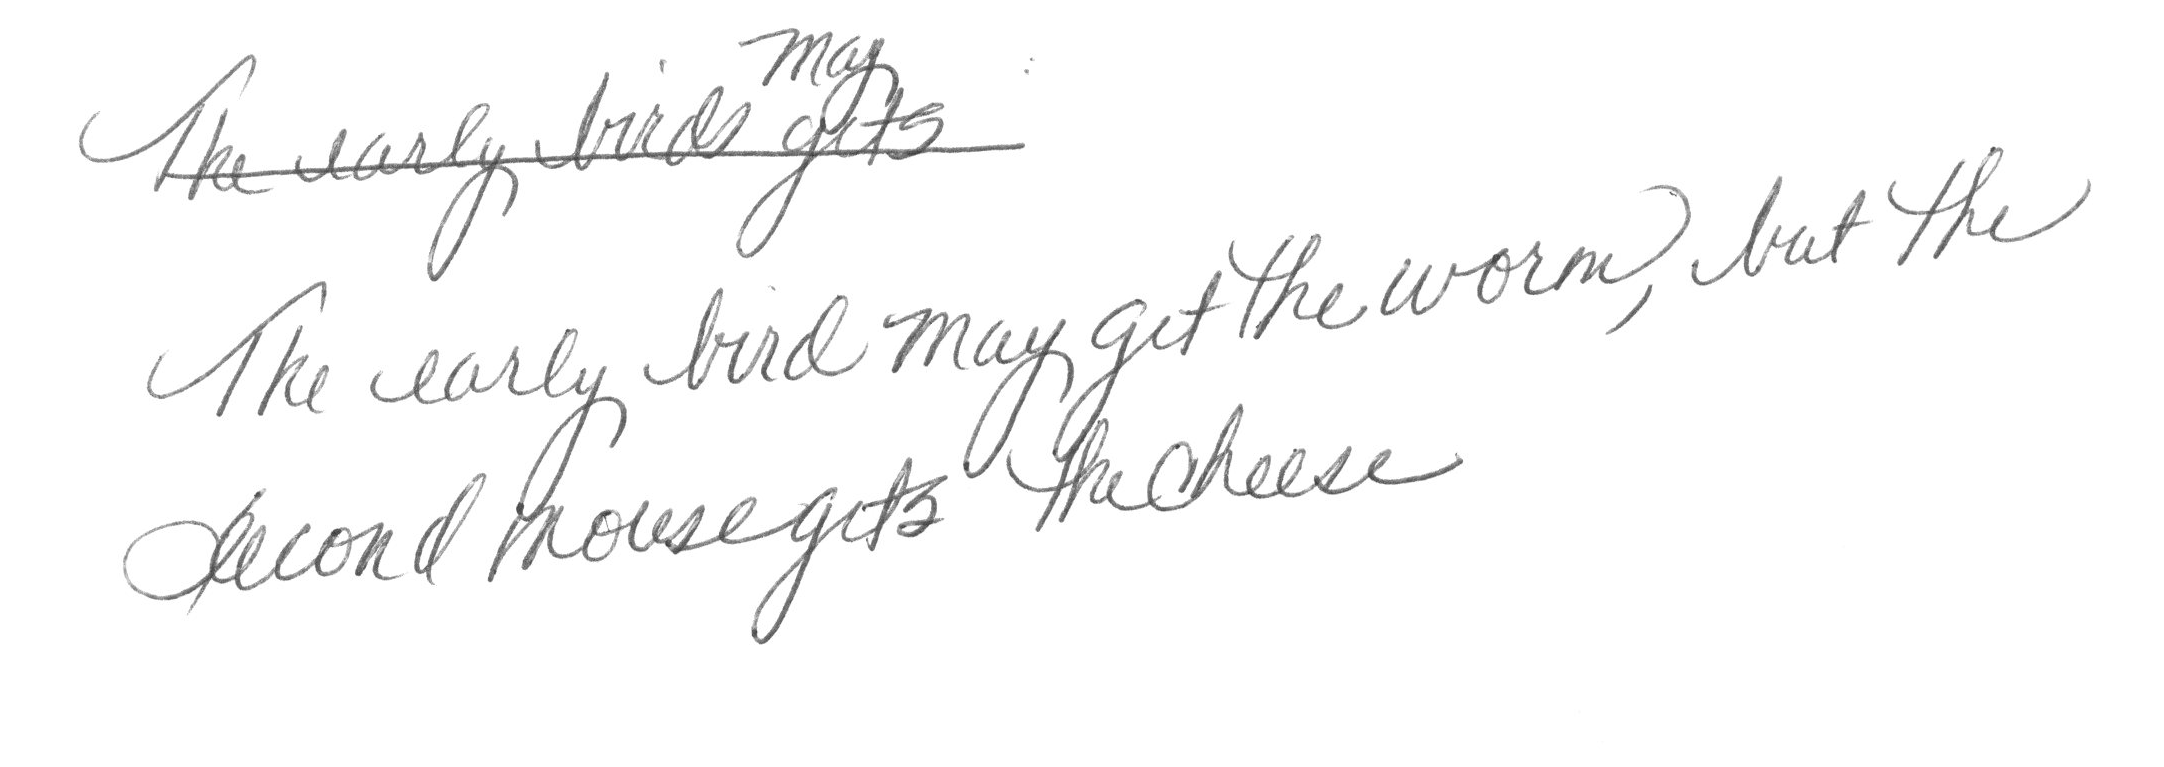 may
The early birds gets
The early bird may get the worm, but the
second mouse gets the cheese